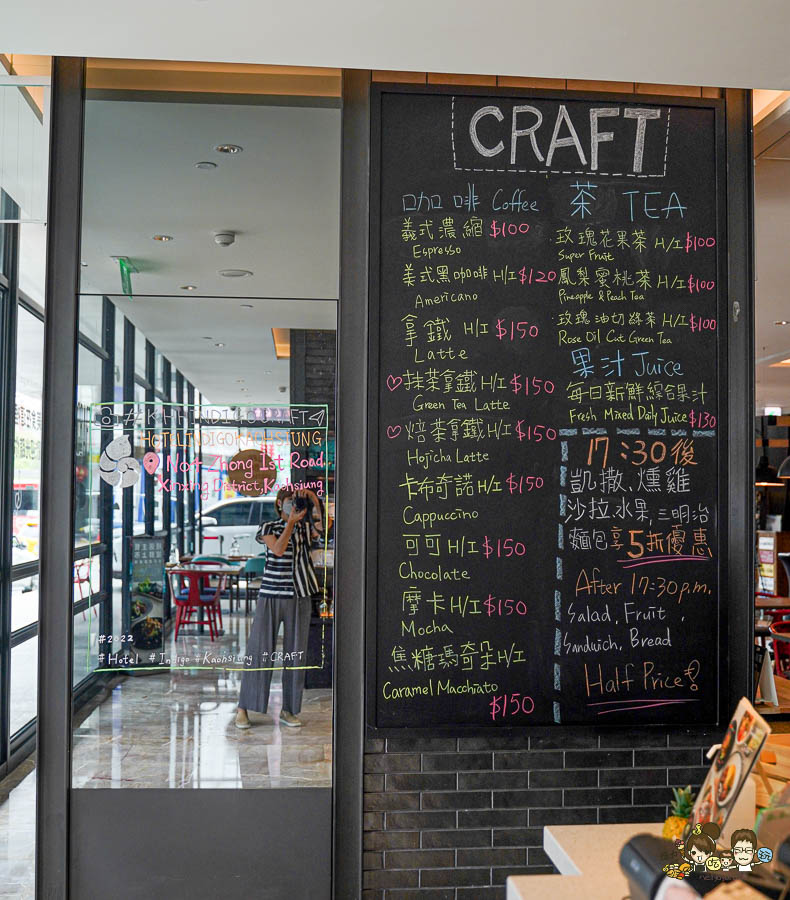 CRAFT
咖啡 Coffee
義式濃縮 $100
Espresso
美式黑咖啡 H/I $120
Americano
拿鐵 H/I $150
Latte
抹茶拿鐵 H/I $150
Green Tea Latte
焙茶拿鐵 H/I $150
Hojicha Latte
卡布奇諾 H/I $150
Cappuccino
可可 H/I $150
Chocolate
摩卡 H/I $150
Mocha
焦糖瑪奇朵 H/I
Caramel Macchiato
$150
茶 TEA
玫瑰花果茶 H/I $100
Super Fruit
鳳梨蜜桃茶 H/I $100
Pineapple & Peach Tea
玫瑰油切綠茶 H/I $100
Rose Oil Cut Green Tea
果汁 Juice
每日新鮮綜合果汁
Fresh Mixed Daily Juice $130
17:30後
凱撒、燻雞
沙拉水果,三明治
麵包享5折優惠
After 17:30 p.m.
Salad, Fruit,
Sandwich, Bread
Half Price!
#KHHINDIGOCRAFT
HOTELINDIGOKAOHSIUNG
No.4 Zhong 1st Road
Xinxing District, Kaohsiung
#2022
#Hotel #Indigo #Kaohsiung #CRAFT